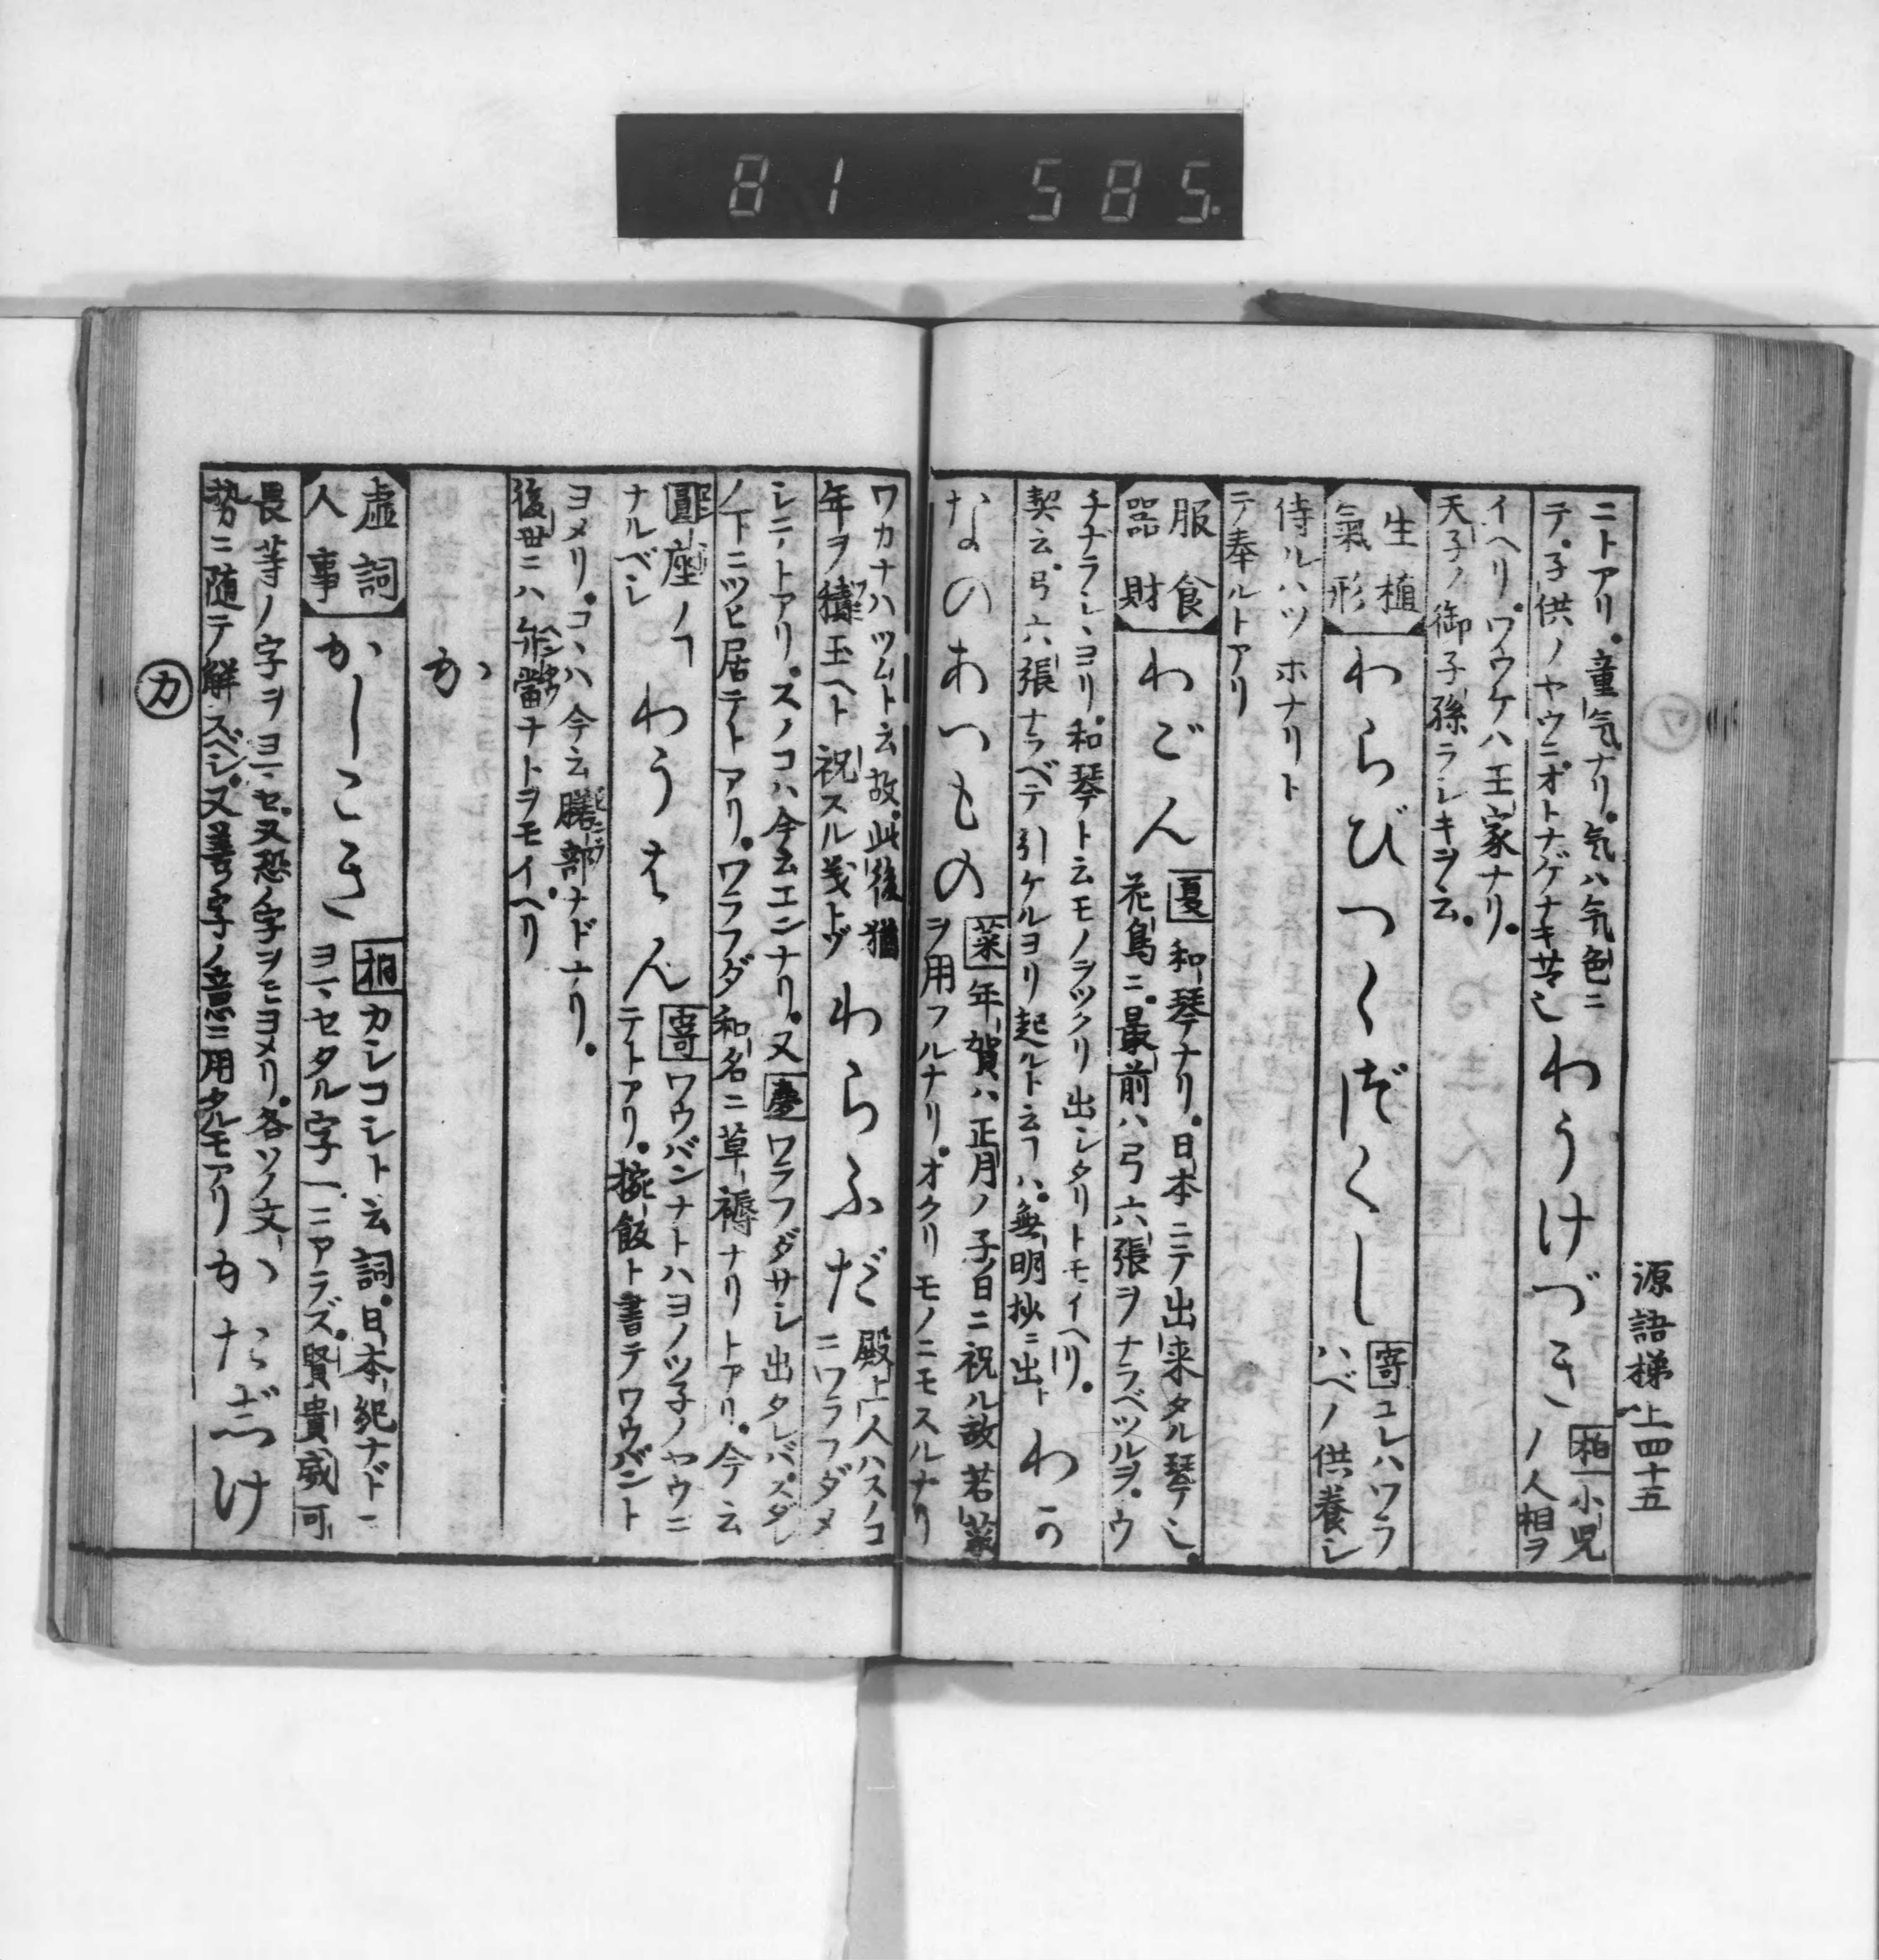 81 585.
源語梯上四十五
ニトアリ。童気ナリ。気ハ気色ニ
テ。子供ノヤウニオトナゲナキ
わうけづき
柏 小児
ノ人相ヲ
イヘリ。ワウケハ王家ナリ。
天子ノ御子孫ラシキヲ云。
生植
氣形
わらびつくづくし
寄 ユレハワラ
ハベノ供養シ
侍ルハツホナリト
テ奉ルトアリ
服食
器財
わごん
夏 和琴ナリ。日本ニテ出来タル琴
花鳥ニ。最前ハ弓六張ヲナラベツルヲ。ウ
チナラシヽヨリ。和琴ト云モノヲツクリ出シタリトモイヘリ。
契云。弓六張ナラベテ引ケルヨリ起ルト云ヿハ。無明抄ニ出
わか
なのあつもの
菜 年賀ハ正月ノ子日ニ祝ル故若菜
ヲ用フルナリ。オクリモノニモスルナリ
ワカナハツムト云故。此後猶
年ヲ積玉ヘト祝スル義トゾ
わらふだ
殿上人ハスノコ
ニワラフダメ
シテトアリ。スノコハ今云エンナリ。又 ワラフダサシ出タレバ。スダレ
ノ下ニツヒ居テトアリ。ワラフダ和名ニ草褥ナリトアリ。今云
圓座ノヿ
ナルベシ
わうはん
寄 ワウバンナトハヨノツ子ノヤウニ
テトアリ。椀飯ト書テワウバント
ヨメリ。コヽハ今云膳部ナドナリ。
後世ニハ弁當ナトヲモイヘリ
か
虚詞
人事
かしこき
桐 カシコシト云詞。日本紀ナドニ
ヨマセタル字一ニアラズ。賢貴威可
畏等ノ字ヲヨマセ。又恐ノ字ヲモヨメリ。各ソノ文
勢ニ随テ解スベシ。又善字ノ意ニ用タルモアリ
かたじけ
カ